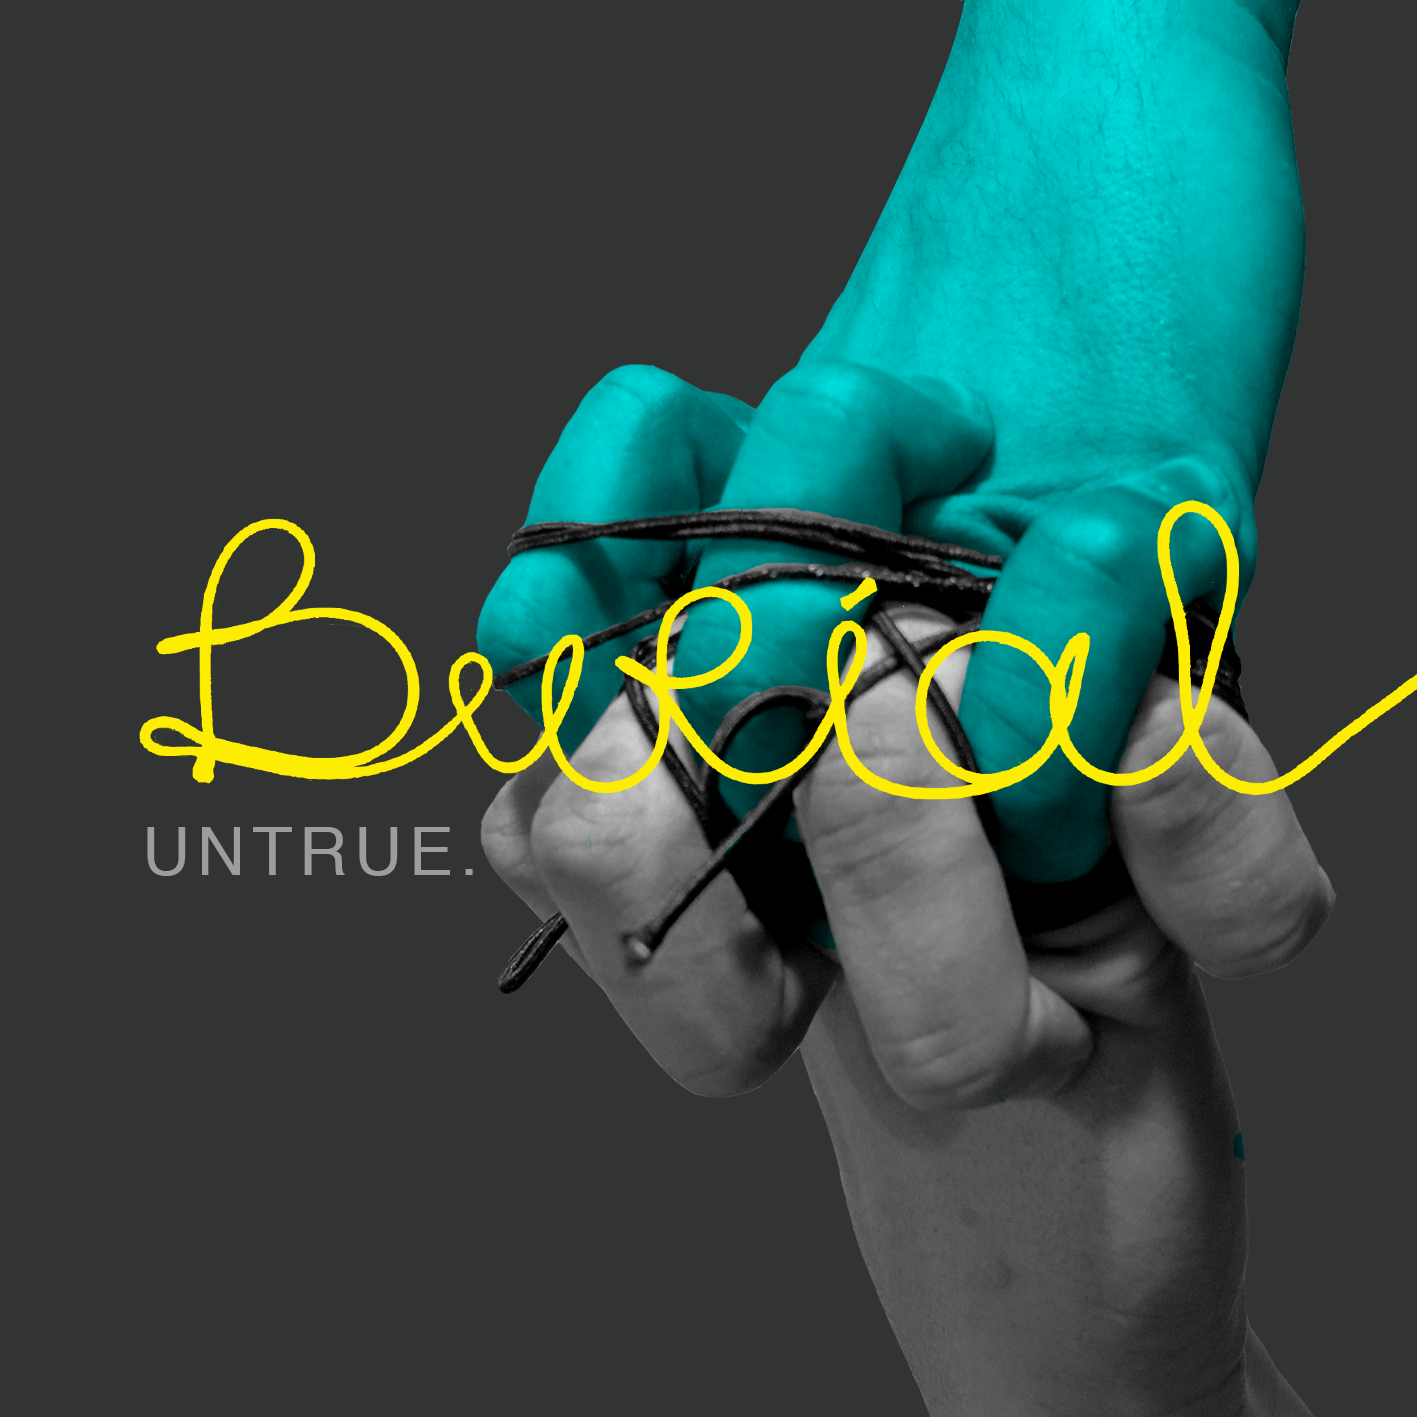 Burial
UNTRUE.